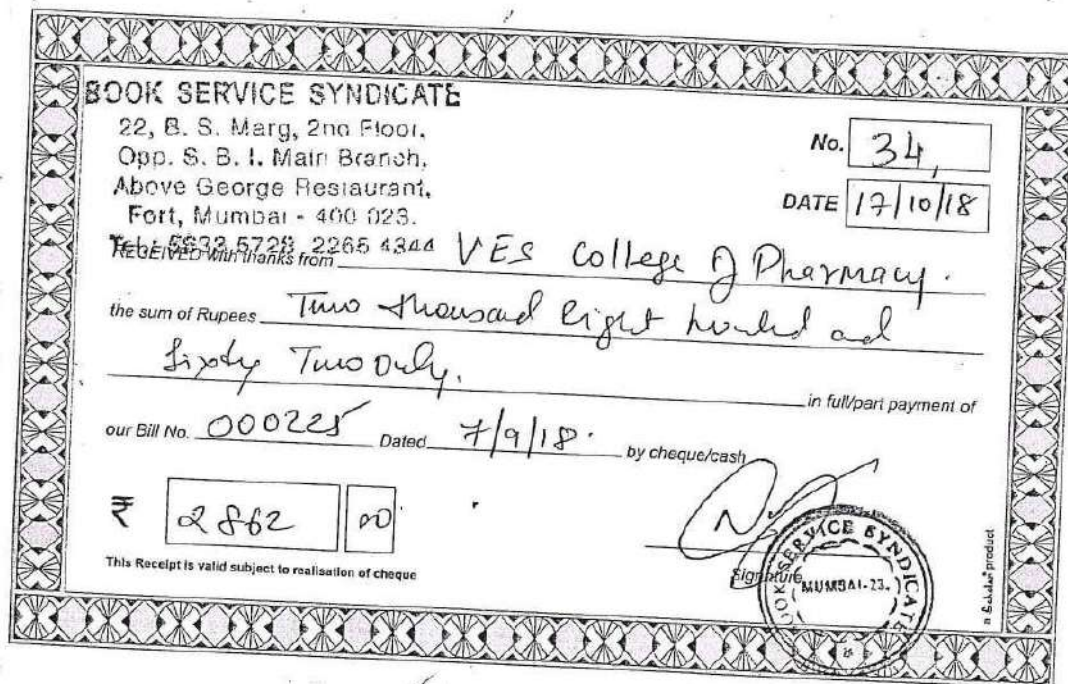 BOOK SERVICE SYNDICATE
22, B. S. Marg, 2nd Floor,
Opp. S. B. I. Main Branch,
Above George Restaurant,
Fort, Mumbai - 400 023.
Tel.: 5633 5728, 2265 4344
No. 34,
DATE 17/10/18
RECEIVED with thanks from VES College of Pharmacy.
the sum of Rupees Two thousand Eight hundred and
Sixty Two Only.
in full/part payment of
our Bill No. 000225 Dated 7/9/18. by cheque/cash
₹ 2862 00
This Receipt is valid subject to realisation of cheque
Signature
BOOK SERVICE SYNDICATE
MUMBAI-23.
a Scholar product